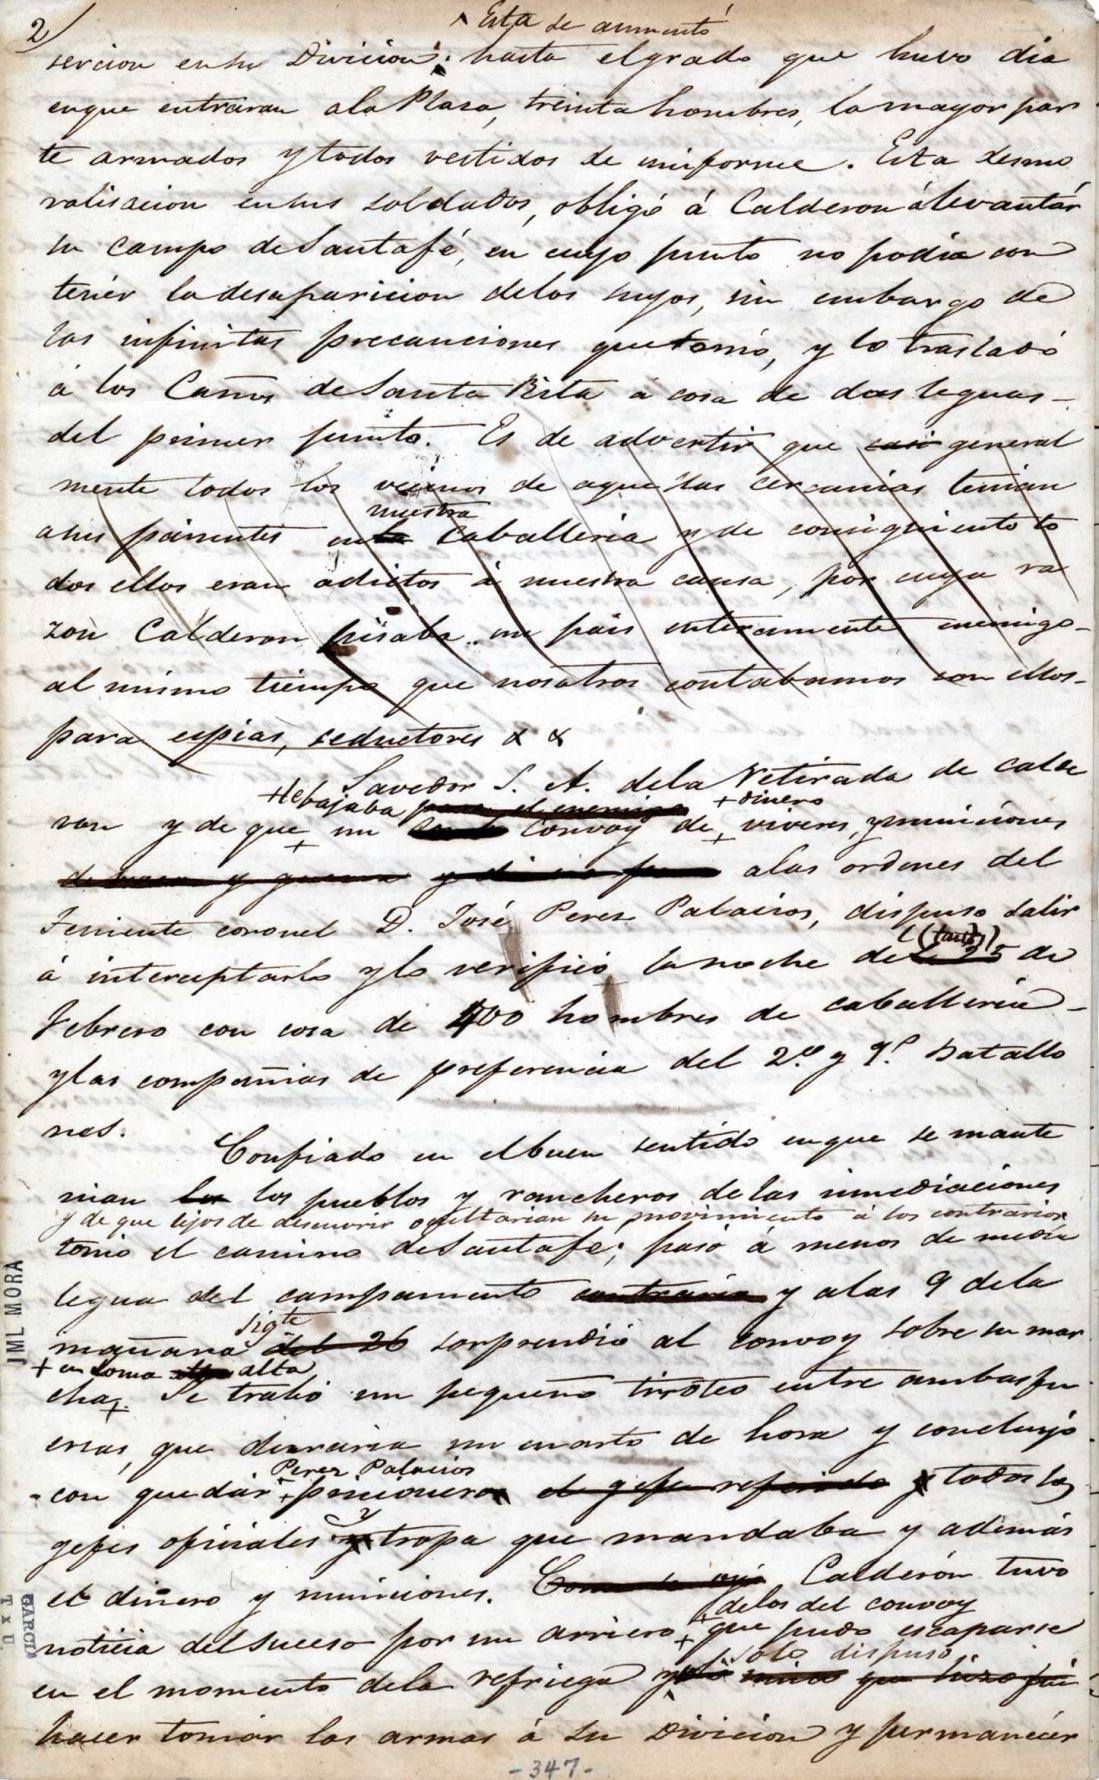 2
Esta se aumentó
sercion en su Division: hasta el grado que huvo dia
enque entraran ala Plasa, treinta hombres, la mayor par
te armados y todos vestidos de uniforme. Esta desmo
ralisacion en sus soldados, obligó á Calderon á levantár
su campo de Santafé, en cuyo punto no podia con
tenér la desaparicion delos suyos, sin embargo de
las infinitas precauciones que tomó, y lo trasladó
á los Caños de Santa Rita a cosa de dos leguas -
del primer punto. Es de advertir que casi general
mente todos los vecinos de aquellas cercanias tenian
nuestra
a sus parientes en la Caballeria y de consiguiente to
dos ellos eran adictos á nuestra causa, por cuya ra
zon Calderon pisaba un pais enteramente enemigo -
al mismo tiempo que nosotros contabamos con ellos -
para espias, seductores & &
Savedor S. A. dela Retirada de calde
+ le bajaba para el enemigo + dinero
ron y de que un convoy de viveres, y municiones
alas ordenes del
Teniente coronel D. José Perez Palacios, dispuso salir
(tantos)
á interceptarlo y lo verificó la noche del 25 de
Febrero con cosa de 400 hombres de caballeria -
y las compañias de preferencia del 2º y 9º Batallo
nes.
Confiado en el buen sentido enque se mante
nian los los pueblos y rancheros de las inmediaciones
y de que lejos de descuvrir ocultarian su movimiento á los contrarios
tomó el camino de Santafé; pasó á menos de media
legua del campamento contrario y alas 9 dela
sigte
mañana del 26 sorprendió al convoy sobre su mar
+ en loma alta
cha. Se trabó un pequeño tiroteo entre ambas fu
ersas, que duraria un cuarto de hora y concluyó
Perez Palacios
- con quedár prisioneros el gefe referido y todos los
gefes oficiales y tropa que mandaba y además
el dinero y municiones. Calderón tuvo
delos del convoy
noticia del suceso por un arriero que pudo escaparse
solo dispuso
en el momento dela refriega y lo unico que hizo fué
hacer tomár las armas á su Division y permanecer
JML MORA
GARCIA
TxU
- 347 -